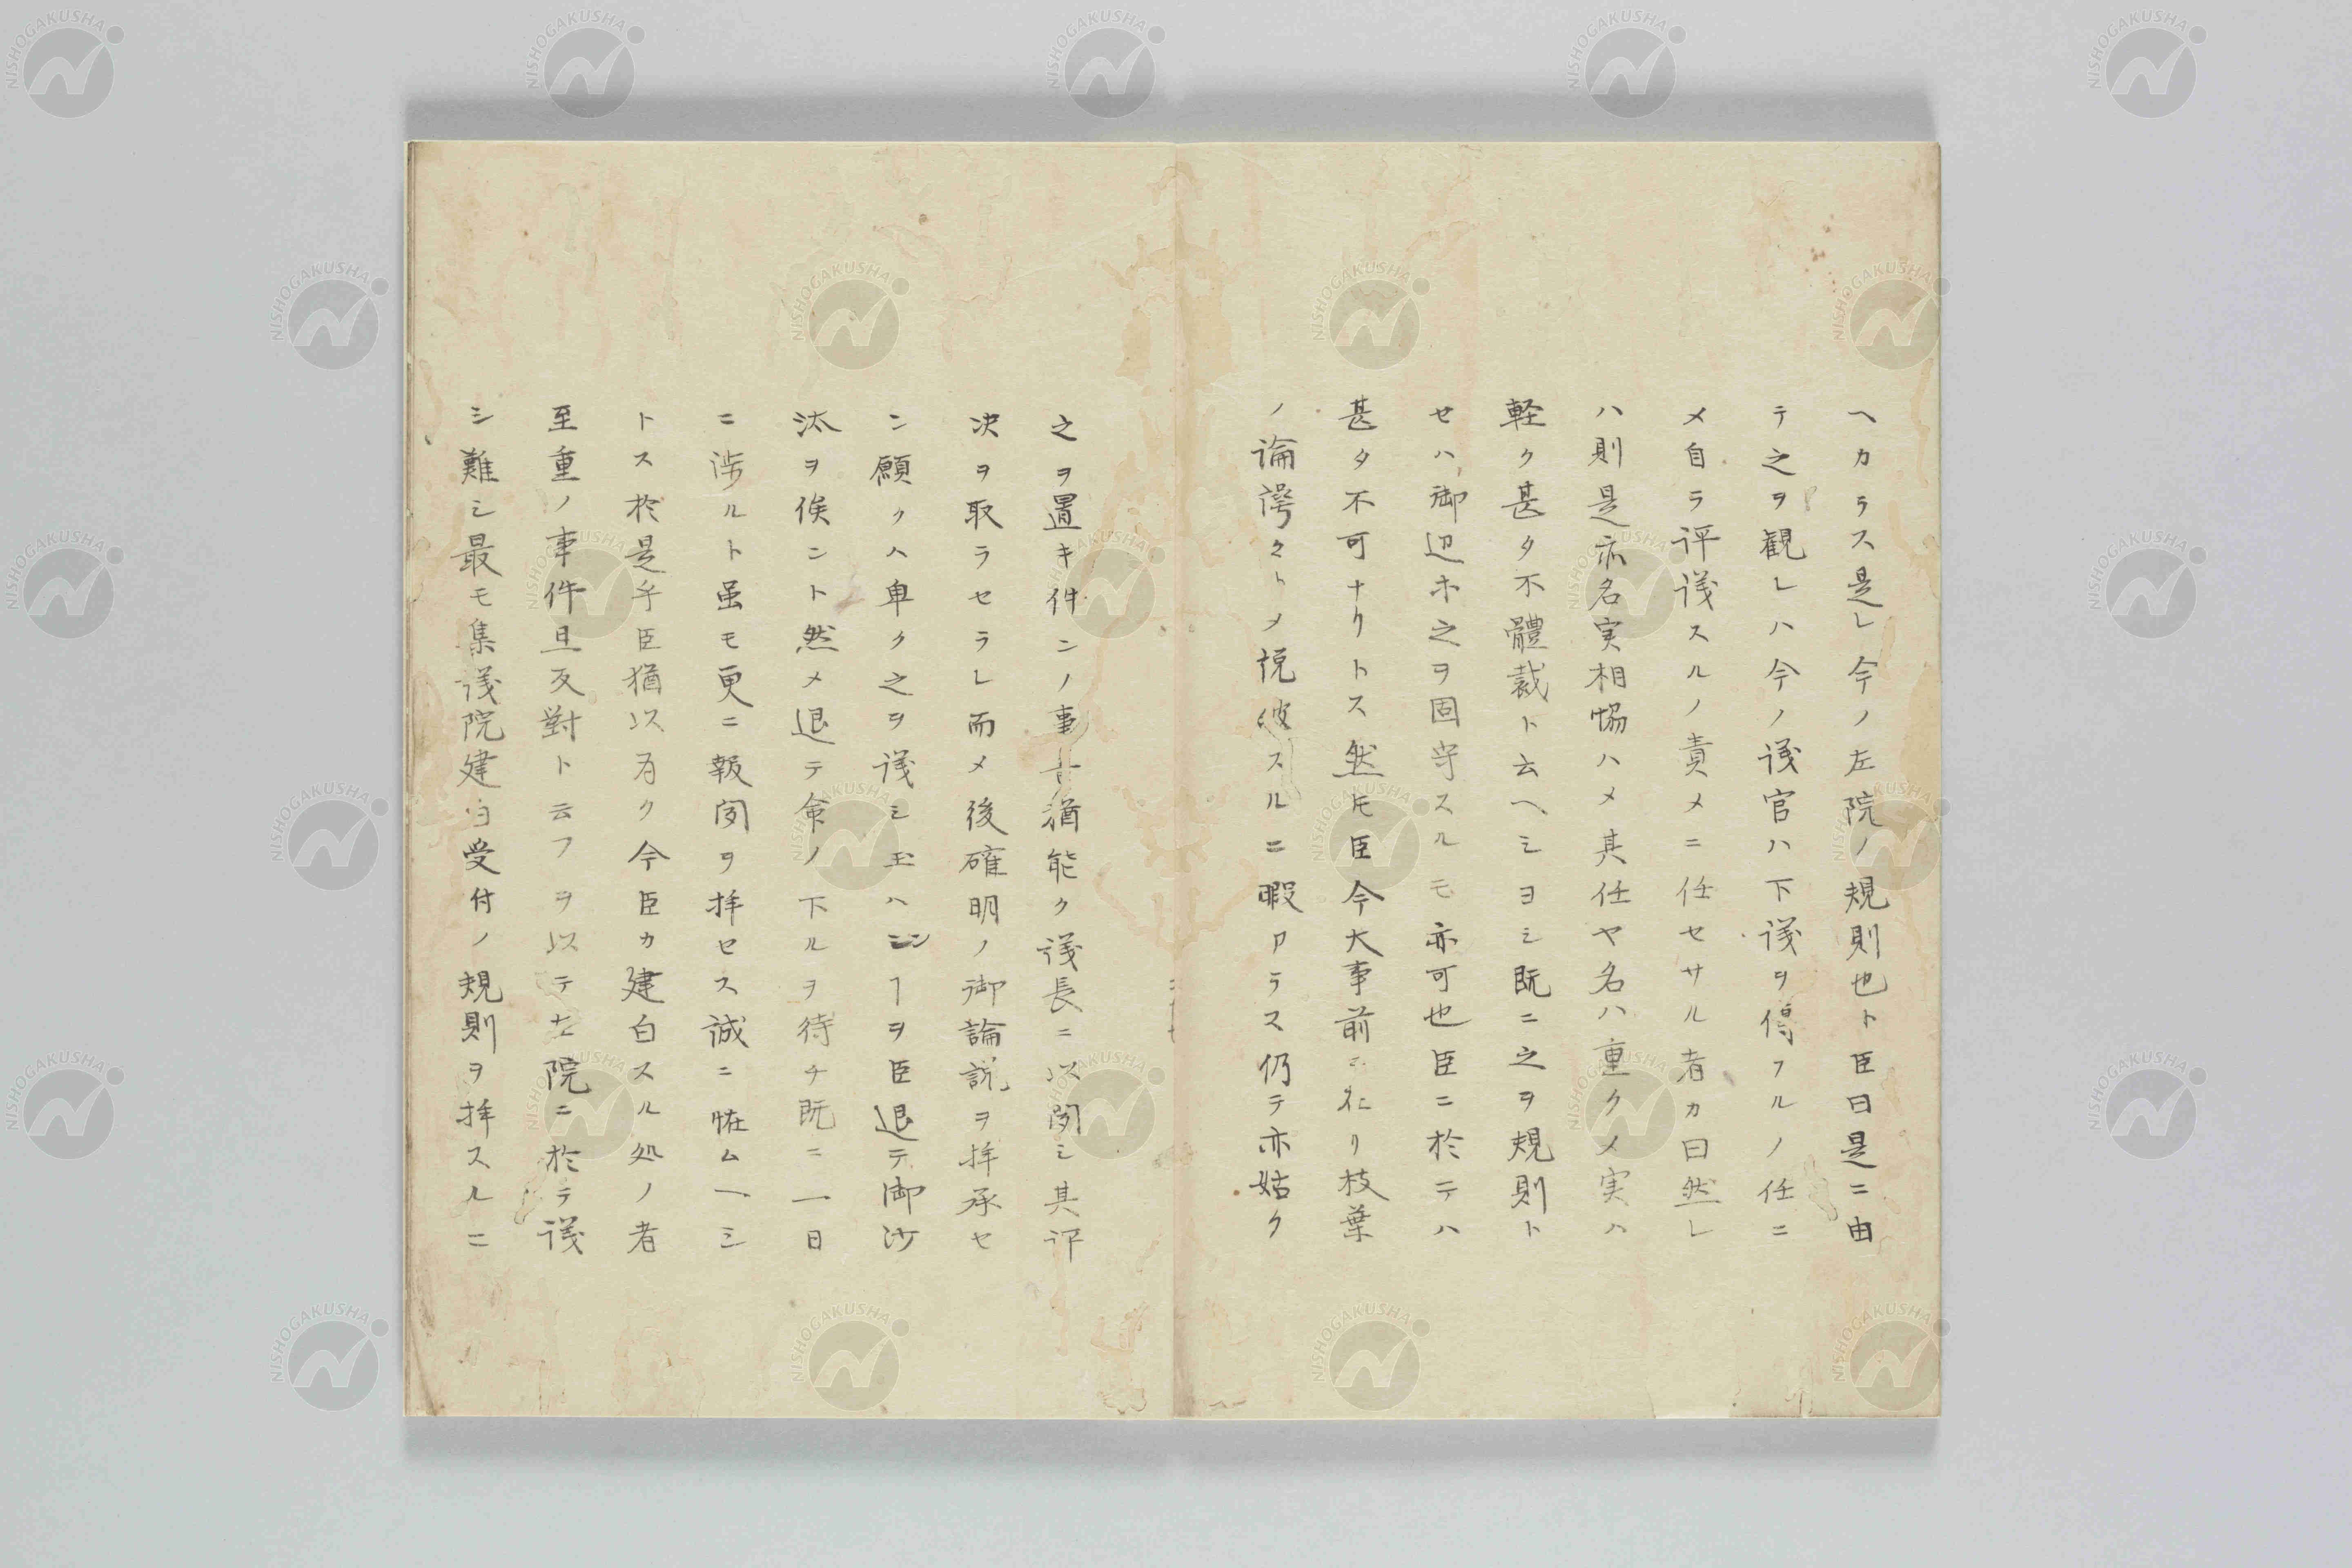 ヘカラス是レ今ノ左院ノ規則也ト臣曰是ニ由
テ之ヲ観レハ今ノ議官ハ下議ヲ得フルノ任ニ
メ自ラ評議スルノ責メニ任セサル者カ曰然レ
ハ則是亦名実相恊ハメ其任ヤ名ハ重クメ実ハ
軽ク甚タ不體裁ト云ヘシヨシ既ニ之ヲ規則ト
セハ御辺ホ之ヲ固守スルモ亦可也臣ニ於テハ
甚タ不可ナリトス然モ臣今大事前ニ在リ枝葉
ノ論諤々トメ説破スルニ暇アラス仍テ亦姑ク
之ヲ置キ件ンノ事書猶能ク議長ニ以聞シ其評
决ヲ取ラセラレ而メ後確明ノ御論説ヲ拝承セ
ン願クハ早ク之ヲ議シ玉ハンヿヲ臣退テ御沙
汰ヲ俟ント然メ退テ命ノ下ルヲ待チ既ニ一日
ニ渉ルト虽モ更ニ報聞ヲ拝セス誠ニ恠ムヘシ
トス於是乎臣猶以為ク今臣カ建白スル処ノ者
至重ノ事件且反對ト云フヲ以テ左院ニ於テ議
シ難シ最モ集議院建白受付ノ規則ヲ拝スルニ
NISHOGAKUSHA